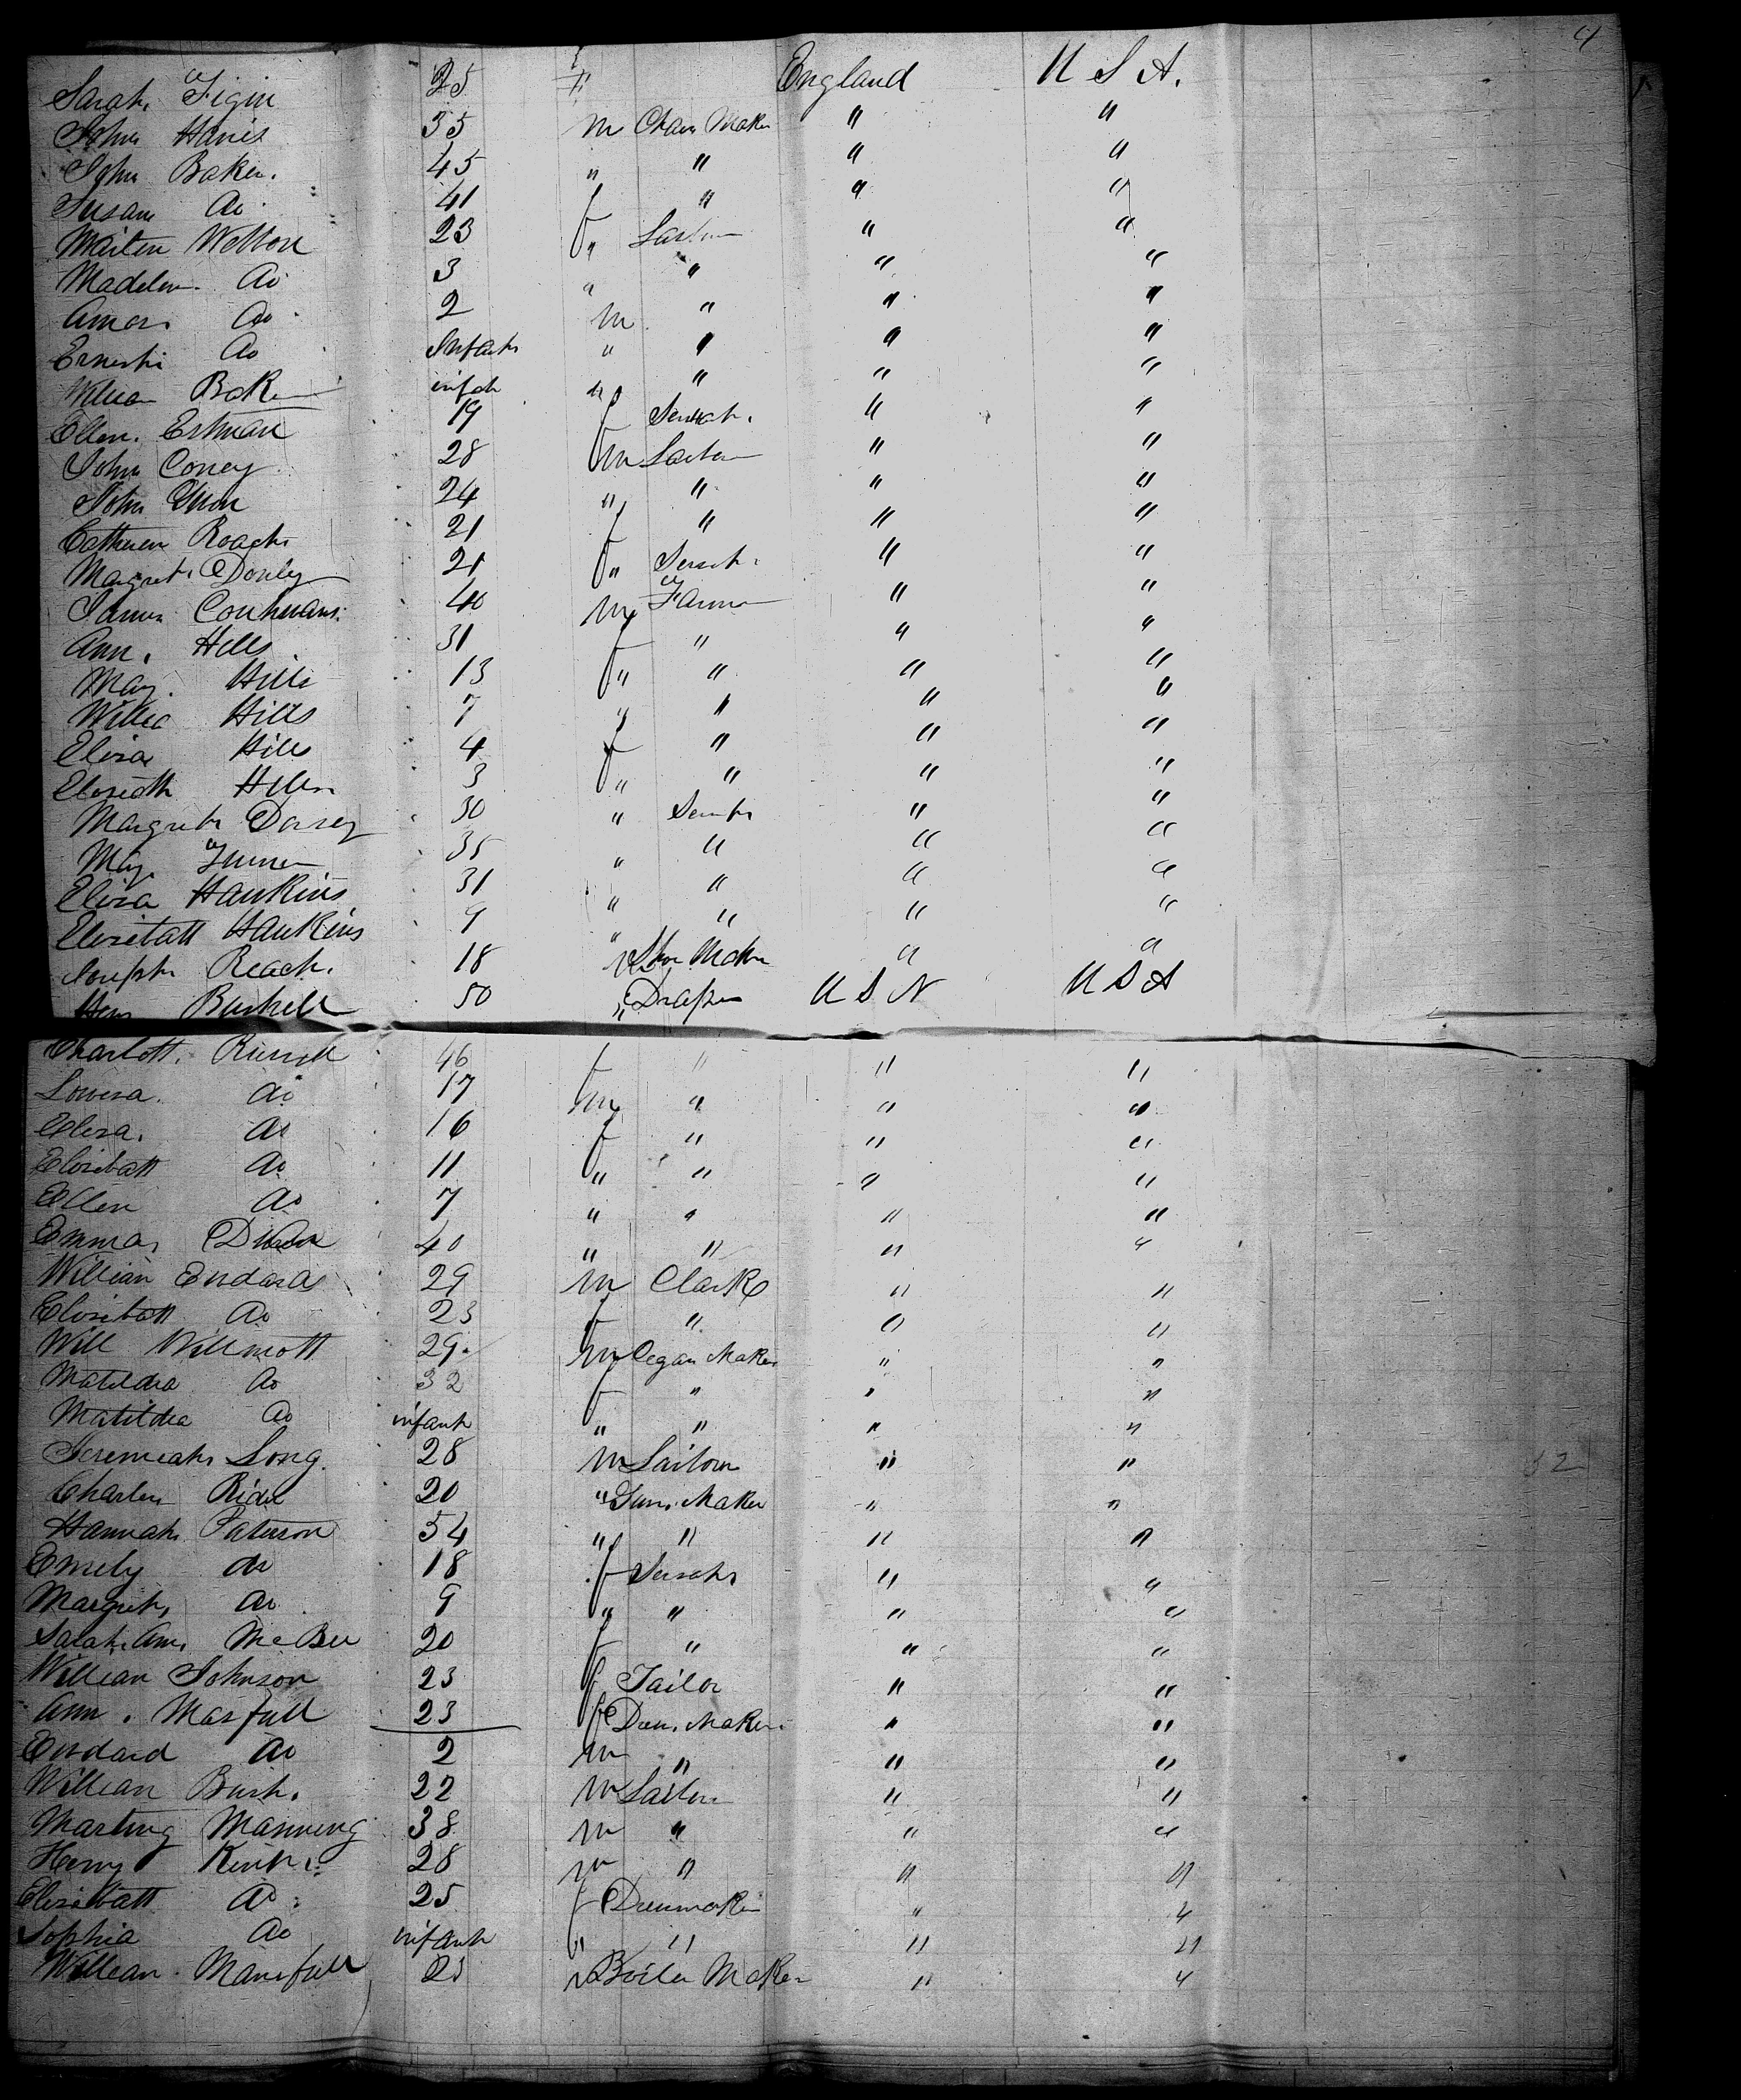 4
Sarah Figin 25 f England U S A.
John Harris 35 m Chair Maker " "
John Baker. 45 " " " "
Susan do 41 f " " "
Marten Welton 23 " " "
Madelen do 3 " " " "
Amos do 2 m " " "
Ernest do Infant " " " "
William Baker infant " " " "
Ellen. Estman 19 f Servant. " "
John Coney 28 m " "
John 24 " " " "
Catheren Roach 21 f " " "
Margret Donley 21 " Servant " "
James 40 m Farmer " "
Ann. Hills 31 f " " "
May. Hills 13 " " " "
Willia Hills 7 " " " "
Elisa Hills 4 f " " "
Elosioth Hills 3 " " " "
Margreth Dorsey 30 " Servant " "
May. Turner 35 " " " "
Elisa Hawkins 31 " " " "
Elositatt Hawkins 9 " " " "
Joseph Reach. 18 m Shoe Maker " "
Burhell 50 " Draper U S N U S A
Charlott. Russell 46 f " " "
Lowesa. do 17 m " " "
Elesa. do 16 f " " "
Elositatt do 11 " " " "
Ellen do 7 " " " "
Emma 40 " " " "
William Endard 29 m Clark " "
Elositatt do 23 f " " "
Will Willmott 29. m Cegar Maker " "
Matildea do 32 f " " "
Matildea do infant " " " "
Jeremeah Long. 28 m Lailour " "
Charles Rider 20 " Gun. Maker " "
Hannah Paterson 54 " " " "
Emely do 18 f Servant " "
Margret do 9 " " " "
Sarah. Ann. McBee 20 f " " "
William Johnson 23 f Tailor " "
Ann. Masfull 23 f Dres. Maker. " "
Endard do 2 m " " "
William Bush. 22 m " "
Marting Manneng 38 m " " "
Henry 28 m " " "
Elositatt do 25 f Dresmaker " "
Sophia do infant " " " "
William. Mansfull 23 m Boiler Maker " "